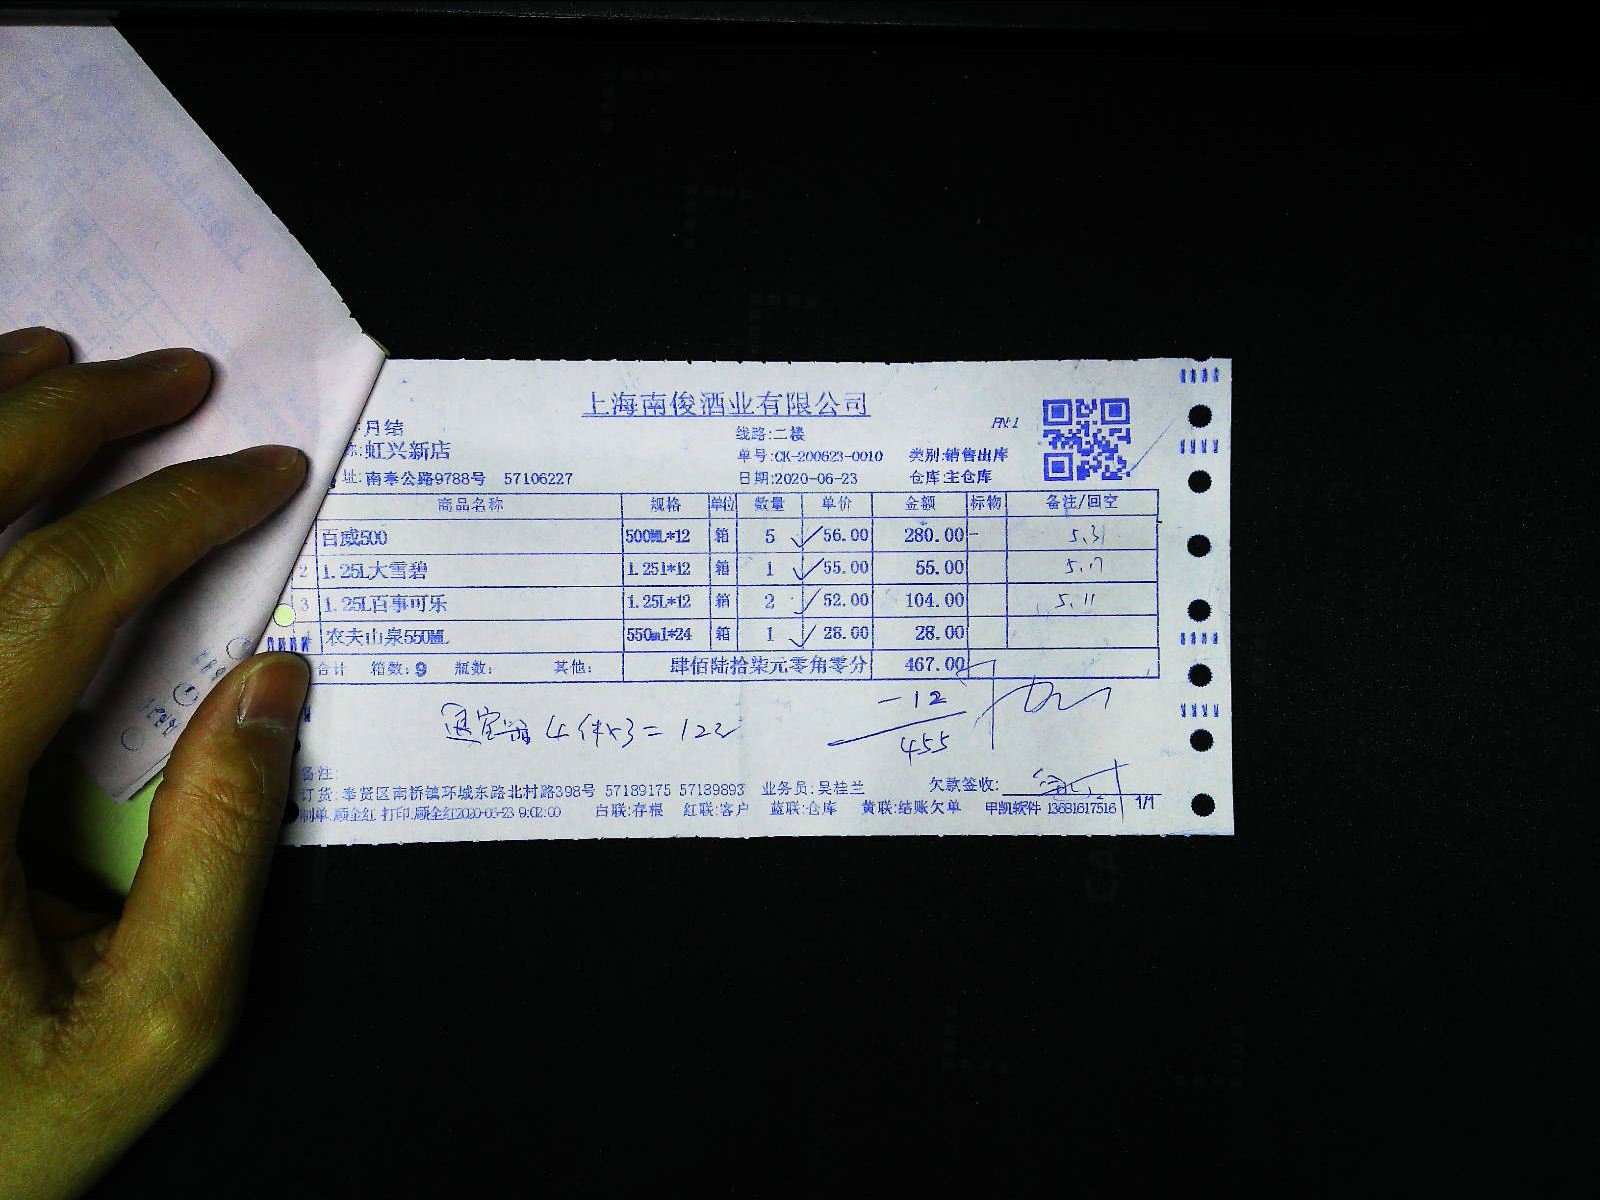 上海南俊酒业有限公司
PN:1
:月结 线路:二楼
称:虹兴新店 单号:CK-200623-0010 类别:销售出库
址:南奉公路9788号 57106227 日期:2020-06-23 仓库:主仓库
商品名称 规格 单位 数量 单价 金额 标物 备注/回空
百威500 500ML*12 箱 5 56.00 280.00 5.31
2 1.25L大雪碧 1.25l*12 箱 1 55.00 55.00 5.17
3 1.25L百事可乐 1.25L*12 箱 2 52.00 104.00 5.11
农夫山泉550ML 550ml*24 箱 1 28.00 28.00
合计 箱数:9 瓶数: 其他: 肆佰陆拾柒元零角零分 467.00
-12
4件×3=12元
455
备注:
订货:奉贤区南桥镇环城东路北村路398号 57189175 57189893 业务员:吴桂兰 欠款签收:
制单:顾全红 打印:顾全红2020-06-23 9:02:00 白联:存根 红联:客户 蓝联:仓库 黄联:结账欠单 甲凯软件 13681617516 1/1